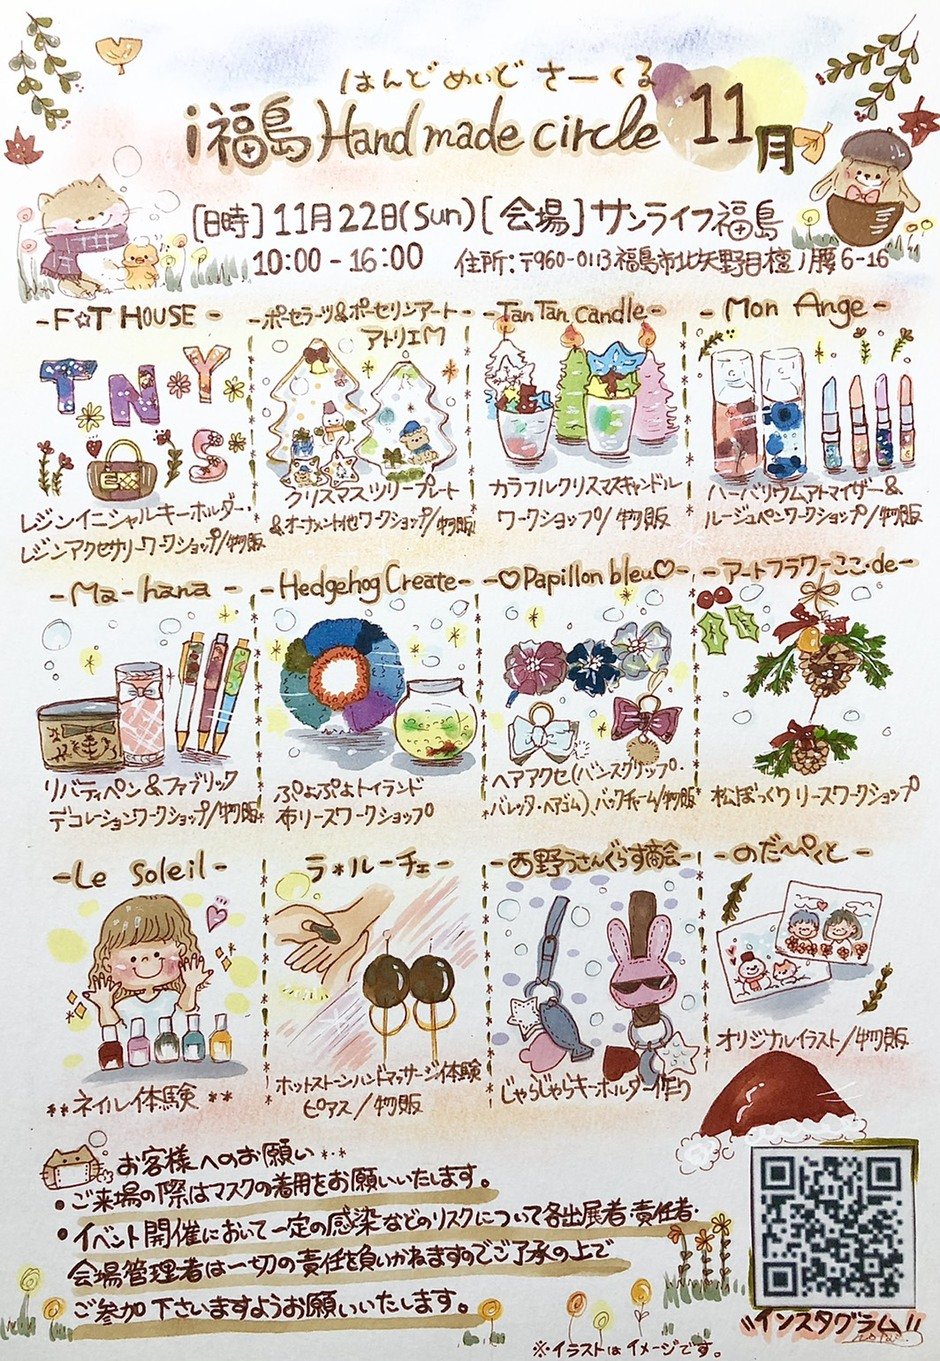 はんどめいどさーくる
i福島 Hand made circle 11月
[日時] 11月22日(Sun) [会場] サンライフ福島
10:00 - 16:00 住所:〒960-0113福島市北矢野目檀ノ腰6-16
-F☆T HOUSE-
TNY
S
レジンイニシャルキーホルダー・
レジンアクセサリーワークショップ/物販
-ポーセラーツ&ポーセリンアート-
アトリエM
クリスマスツリープレート
&オーナメント他ワークショップ/物販
-TanTan candle-
カラフルクリスマスキャンドル
ワークショップ/物販
-Mon Ange-
ハーバリウムアトマイザー&
ルージュペンワークショップ/物販
-Ma-hana-
リバティペン&ファブリック
デコレーションワークショップ/物販
-Hedgehog Create-
ぷよぷよトイランド
布リースワークショップ
-♡Papillon bleu♡-
ヘアアクセ(バンスクリップ・
バレッタ・ヘアゴム)、バックチャーム/物販
-アートフラワーここ・de-
松ぼっくりリースワークショップ
-Le Soleil-
**ネイル体験**
ラ*ルーチェ-
ホットストーンハンドマッサージ体験
ピアス/物販
-西野うさんぐらす商会-
じゃらじゃらキーホルダー作り
-のだ〜ぺくと-
オリジナルイラスト/物販
お客様へのお願い**
・ご来場の際はマスクの着用をお願いいたします。
・イベント開催において一定の感染などのリスクについて各出展者・責任者・
会場管理者は一切の責任を負いかねますのでご了承の上で
ご参加下さいますようお願いいたします。
"インスタグラム"
※イラストはイメージです。